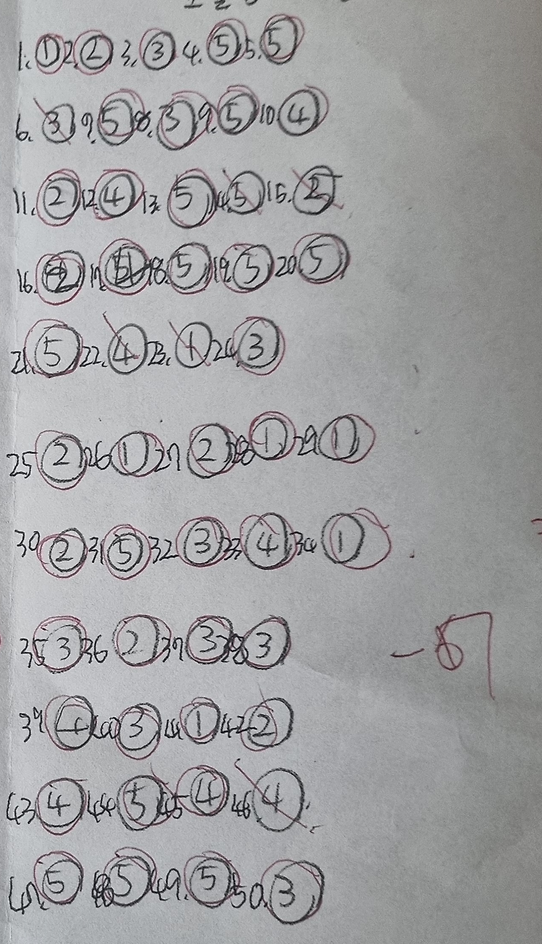 1. ① 2. ② 3. ③ 4. ⑤ 5. ⑤
6. ③ 7. ⑤ 8. ③ 9. ⑤ 10 ④
11. ② 12. ④ 13. ⑤ 14. ⑤ 15. ②
16. ② 17. ⑤ 18. ⑤ 19. ⑤ 20 ⑤
21. ⑤ 22. ④ 23. ① 24. ③
25 ② 26 ① 27 ② 28 ① 29 ①
30 ② 31 ⑤ 32 ③ 33 ④ 34 ①
35 ③ 36 ② 37 ③ 38 ③
39 ④ 40 ③ 41 ① 42 ②
43 ④ 44 ⑤ 45 ④ 46 ④
47. ⑤ 48 ⑤ 49. ⑤ 50. ③